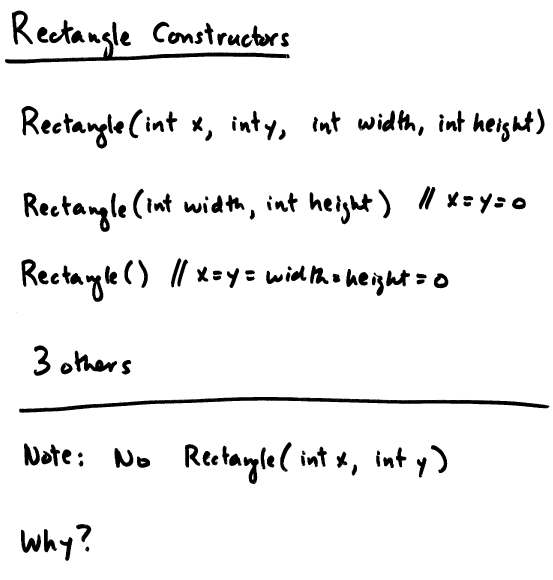 Rectangle Constructors
Rectangle(int x, int y, int width, int height)
Rectangle(int width, int height) // x=y=0
Rectangle() // x=y= width=height=0
3 others
Note: No Rectangle(int x, int y)
Why?